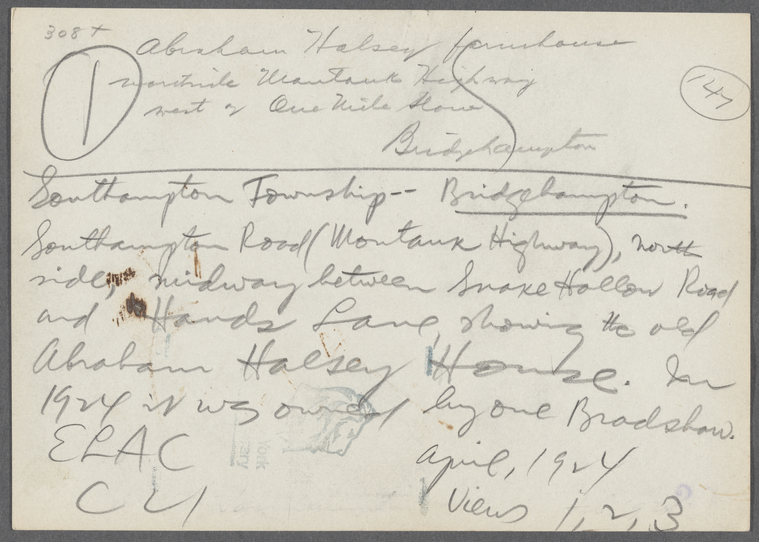 308+
Abraham Halsey farmhouse
1
northside Montauk Highway
147
west of One Mile Stone
Bridgehampton
Southampton Township-- Bridgehampton.
Southampton Road (Montauk Highway), north
side, midway between Snake Hollow Road
and Hands Lane, showing the old
Abraham Halsey House. In
1924 it was owned by one Bradshaw.
ELAC
April, 1924
C 21
Views 1, 2, 3